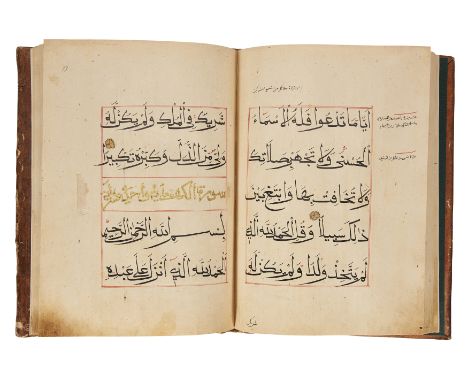 أيا ما تدعوا فله الأسماء
الحسنى ولا تجهر بصلاتك
ولا تخافت بها وابتغ بين
ذلك سبيلا وقل الحمد لله الذي
لم يتخذ ولدا ولم يكن له
شريك في الملك ولم يكن له
ولي من الذل وكبره تكبيرا
سورة الكهف
بسم الله الرحمن الرحيم
الحمد لله الذي أنزل على عبده